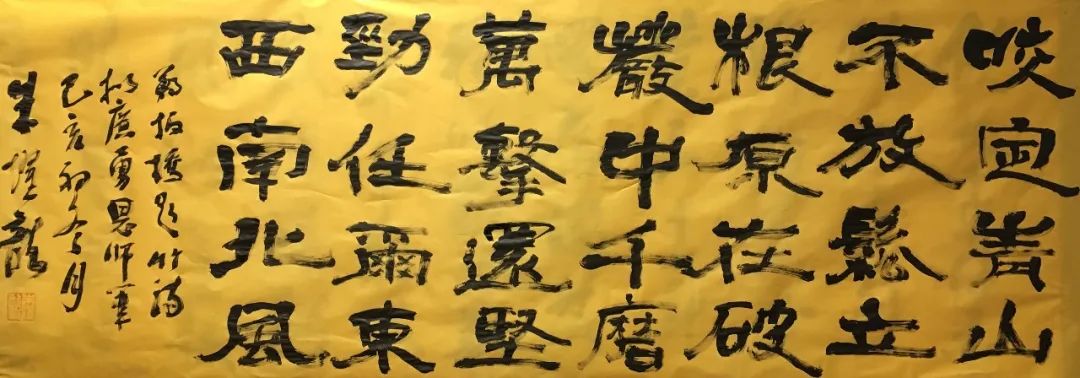 咬定青山
不放鬆立
根原在破
巖中千磨
萬擊還堅
勁任爾東
西南北風
鄭板橋題竹詩
廣勇恩師筆
己亥月
朱龍